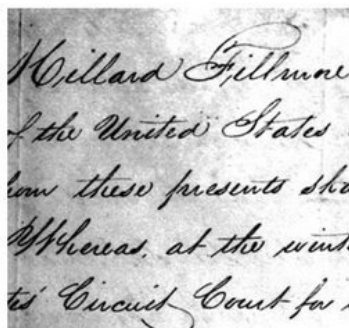 Millard Fillmore
of the United States
these presents
Whereas, at the
Circuit Court for